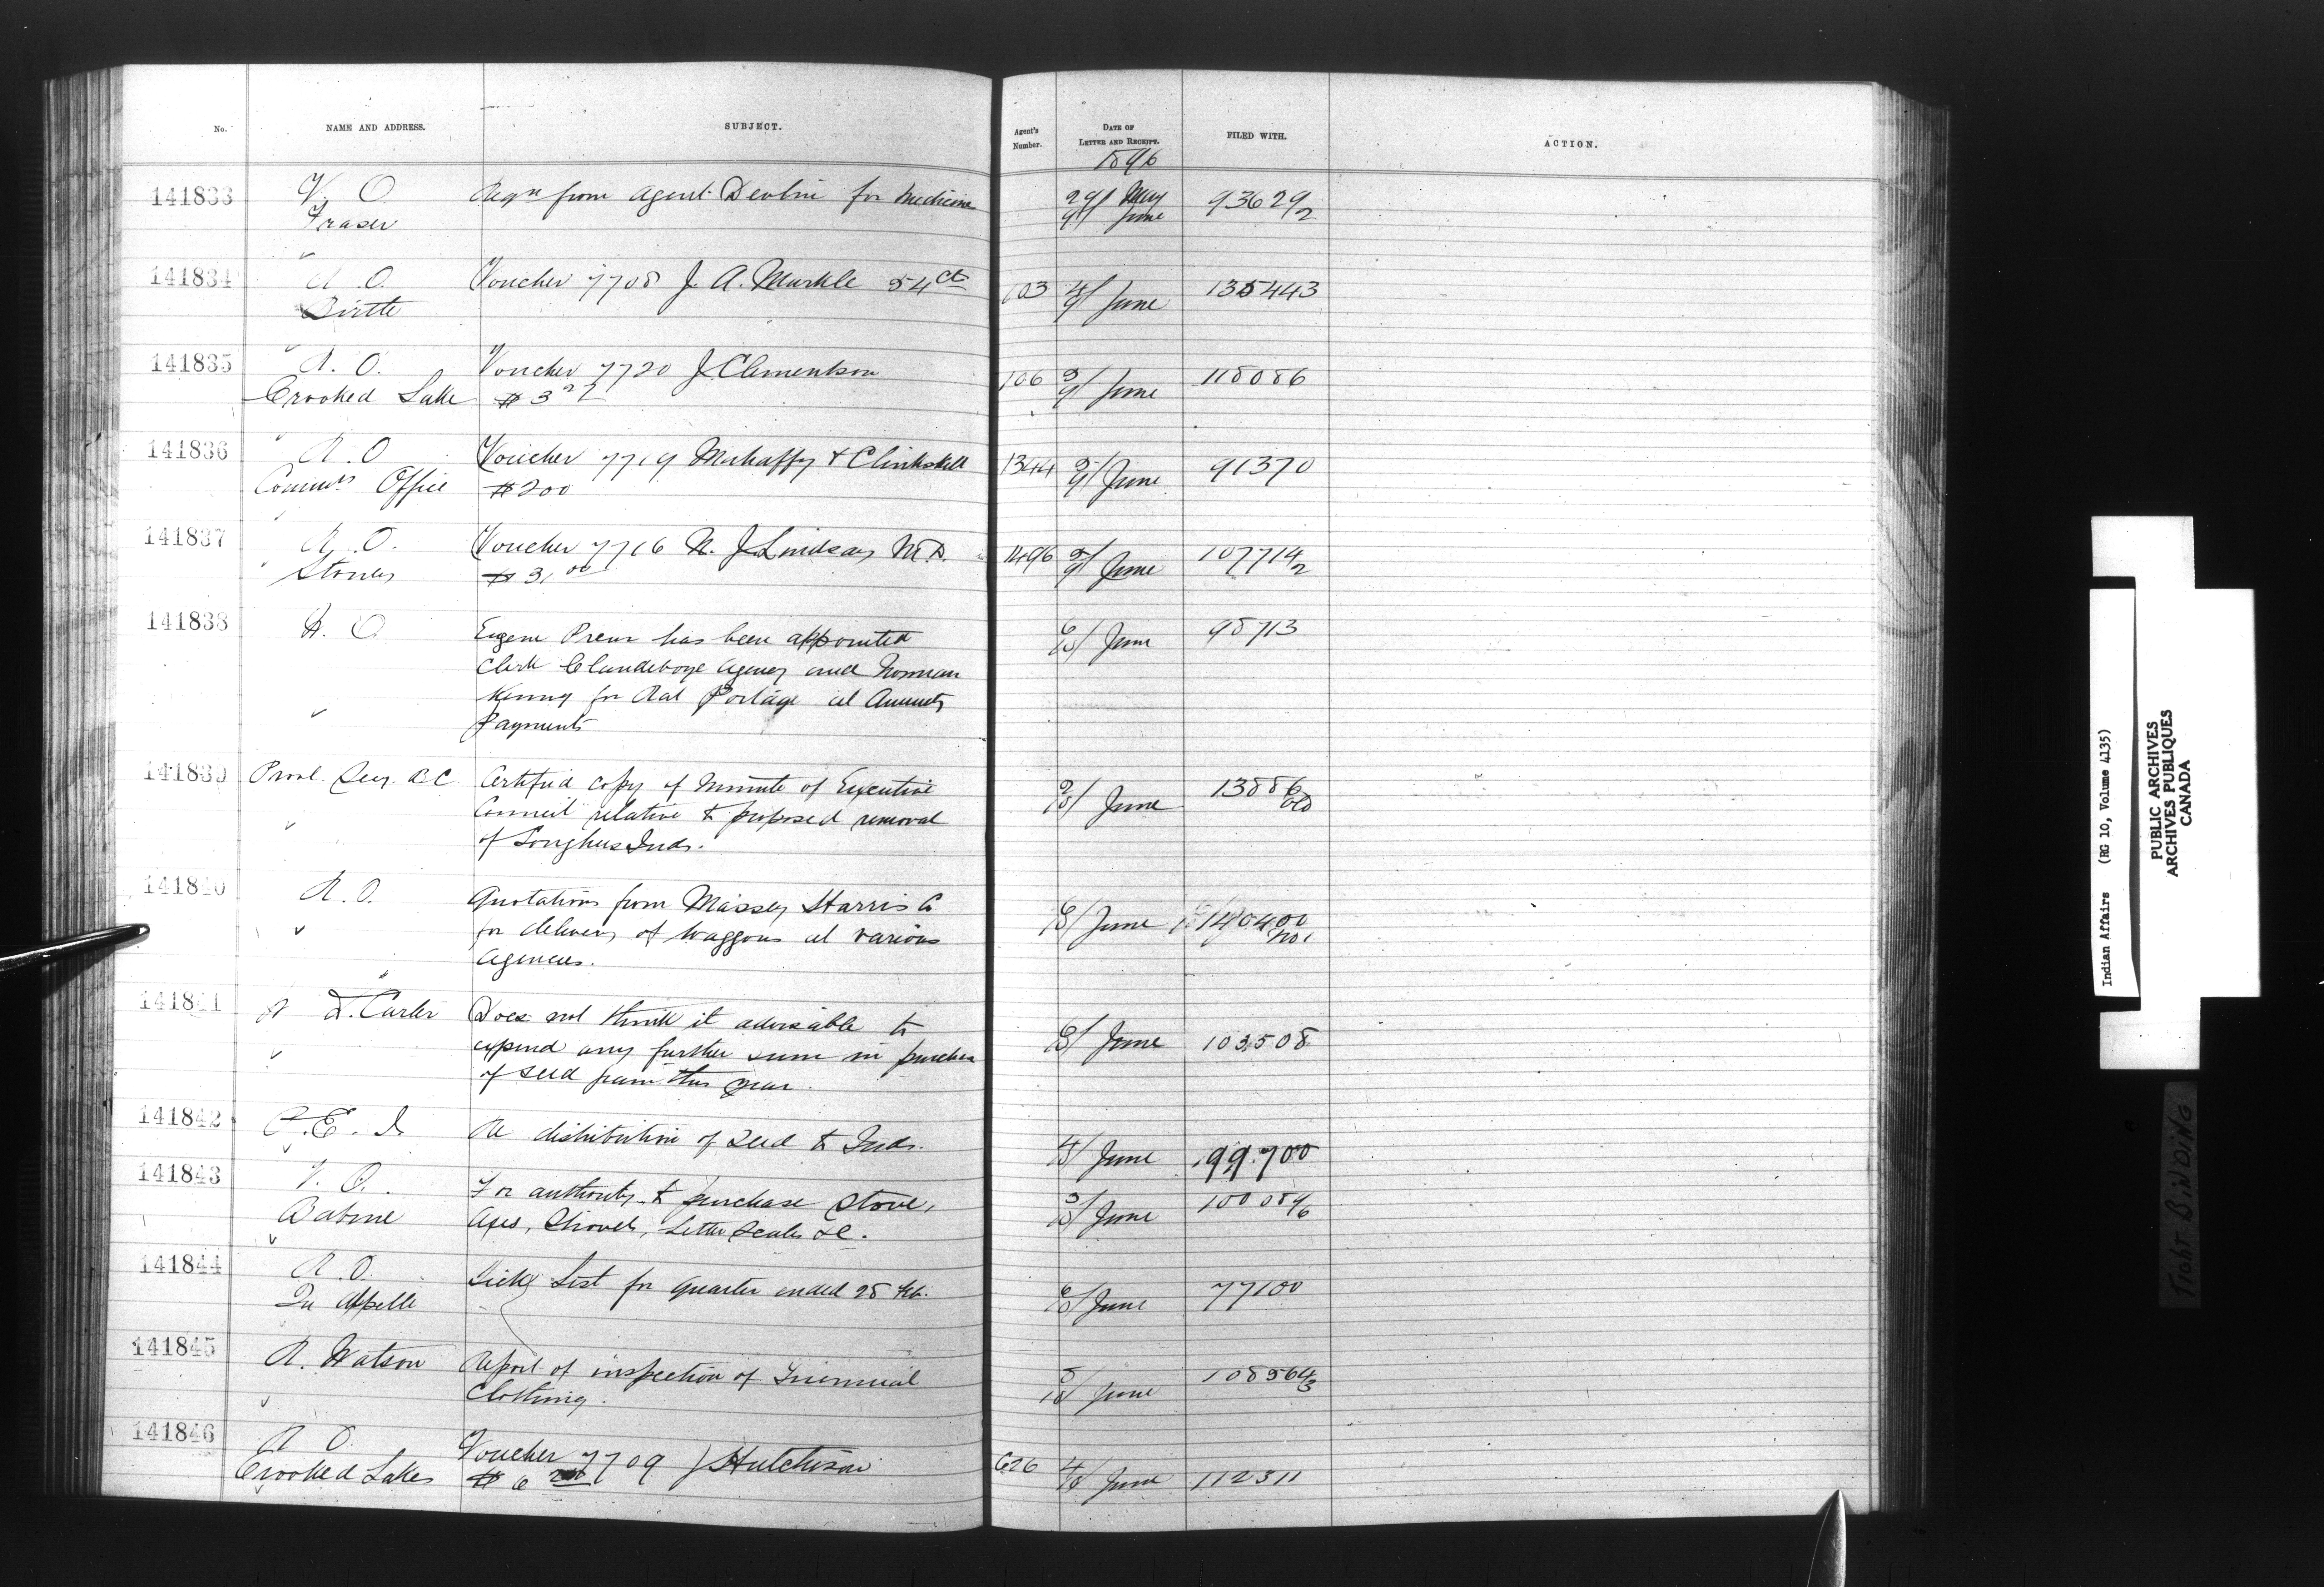 No. NAME AND ADDRESS. SUBJECT. Agent's Number. DATE OF LETTER AND RECEIPT. FILED WITH. ACTION.
1896
141833 V. O. Reqn from Agent Devlin for Medicine 29/ May 93629/2
Fraser 9/ June
141834 R. O. Voucher 7708 J. A. Markle 54 cts 103 4/ June 135443
Birtle 9/
141835 R. O. Voucher 7720 J Clementson 106 9/ June 118086
Crooked Lake $ 3
141836 R. O Voucher 7719 Mahaffy & Clinkskill 1344 5/ June 91370
Commrs Office $200
141837 R. O. Voucher 7716 N. J Lindsay M.D. 1496 5/ June 107714/2
Stoney $ 31 00
141838 R. O. Eugene Preur has been appointed 6/10/ June 98713
Clerk Clandeboye Agency and Norman
Kenny for Rat Portage at Annuity
Payments
141839 Provl. Secy. B.C. Certified copy of Minute of Executive 2/10/ June 13886 old
Council relative to proposed removal
of Songhees Inds.
141840 R. O. Quotations from Massey Harris Co 6/10/ June 140400 no 1
for delivery of waggons at various
Agencies.
141841 L. Carter Does not think it advisable to 6/10/ June 103508
expend any further sum in purchase
of seed grain this year.
141842 P. E. I. Re distribution of Seed to Inds. 4/10/ June 99700
141843 V. O. For authority to purchase Stove, 3/10/ June 100089/6
Babine Axes, Shovels, Letter Scales &c.
141844 R. O. Sick List for Quarter ended 28 Feb. 6/10/ June 77100
Qu Appelle
141845 R. Watson Report of inspection of Triennial 5/10/ June 108564/3
Clothing.
141846 R O. Voucher 7709 J Hutchison 626 4/10/ June 112311
Crooked Lakes $ 6
Indian Affairs (RG 10, Volume 4135)
PUBLIC ARCHIVES
ARCHIVES PUBLIQUES
CANADA
TIGHT BINDING